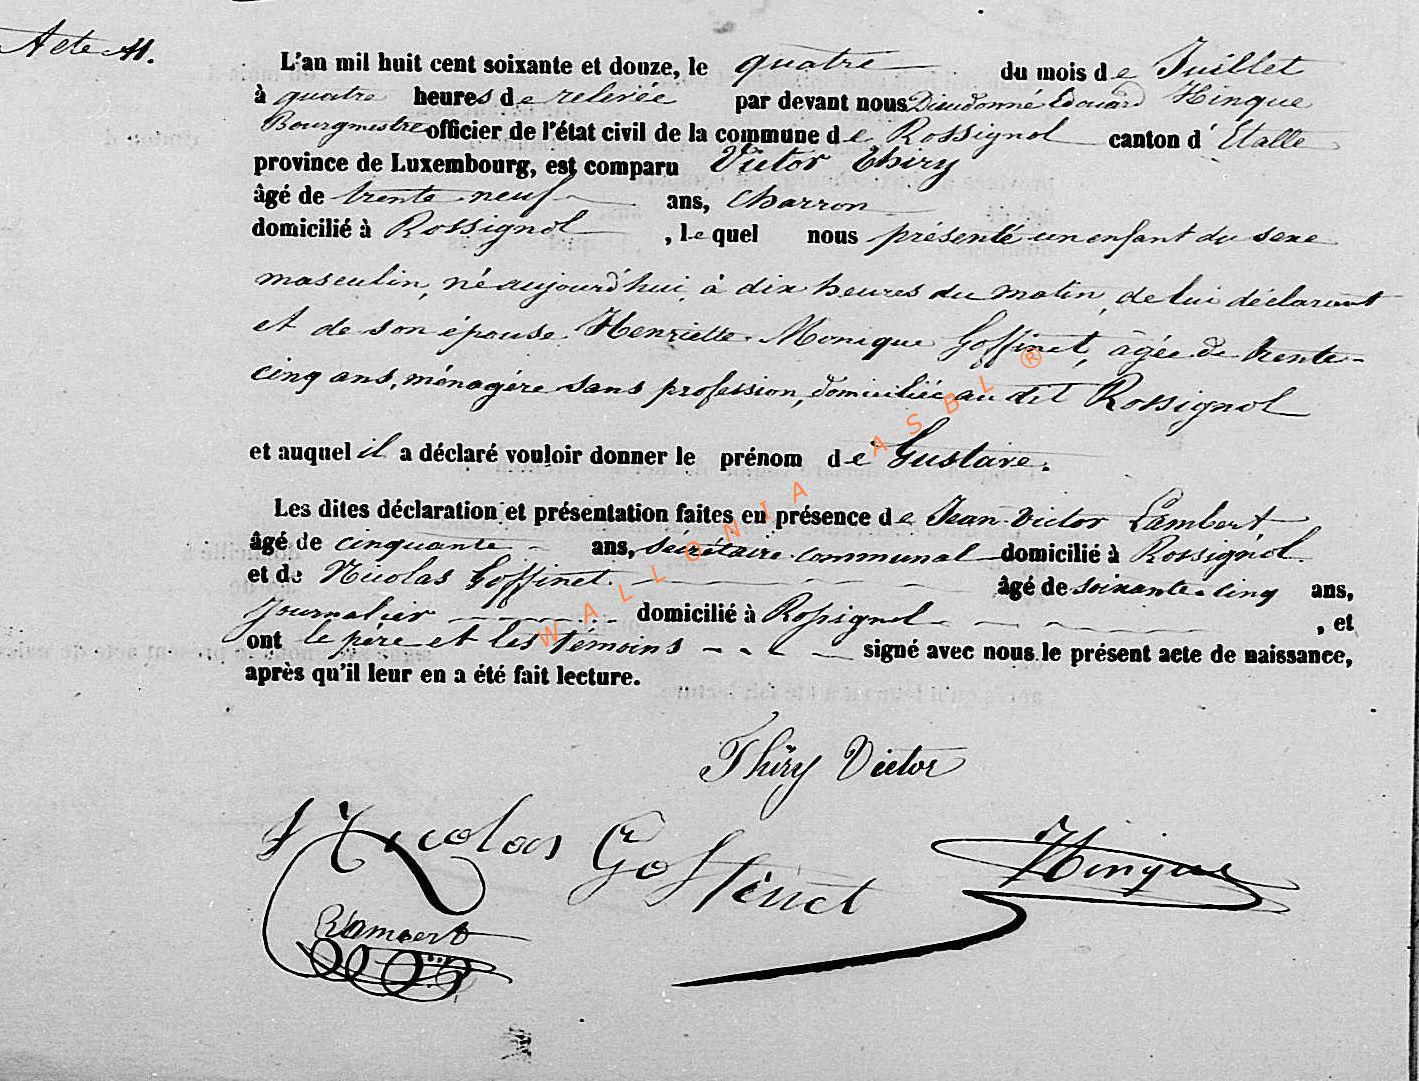 Acte 41.
L'an mil huit cent soixante et douze, le quatre du mois de Juillet
à quatre heures de relevée par devant nous Dieudonné Edouard Hinque
Bourgmestre officier de l'état civil de la commune de Rossignol canton d'Etalle
province de Luxembourg, est comparu Victor Thiry
âgé de trente neuf ans, charron
domicilié à Rossignol, lequel nous présenté un enfant du sexe
masculin, né aujourd'hui, à dix heures du matin, de lui déclarant
et de son épouse Henriette Monique Goffinet, âgée de trente-
cinq ans, ménagére sans profession, domiciliée au dit Rossignol
et auquel il a déclaré vouloir donner le prénom de Gustave.
Les dites déclaration et présentation faites en présence de Jean-Victor Lambert
âgé de cinquante ans, sécrétaire communal domicilié à Rossignol
et de Nicolas Goffinet âgé de soixante-cinq ans,
Journalier domicilié à Rossignol, et
ont le père et les témoins signé avec nous le présent acte de naissance,
après qu'il leur en a été fait lecture.
WALLONIA ASBL ®
Thiry Victor
Nicolas Goffinet
Hinque
Lambert